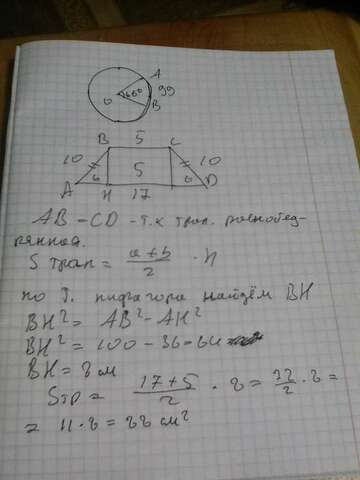 A
O
99
B
B 5 C
10 5 10
A 6 H 17 6 D
AB = CD - т.к трап. равнобед-
рянная.
S трап = a+b/2 · h
по Т. пифагора найдём BH
BH² = AB² - AH²
BH² = 100 - 36 = 64
BH = 8 см
Sтр = 17+5/2 · 8 = 22/2 · 8 =
= 11 · 8 = 88 см²